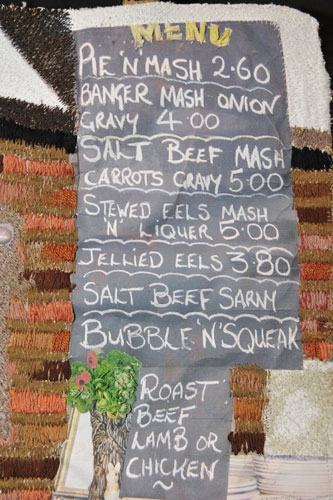 MENU
PIE 'N MASH 2.60
BANGER MASH ONION
GRAVY 4.00
SALT BEEF MASH
CARROTS GRAVY 5.00
STEWED EELS MASH
'N' LIQUER 5.00
JELLIED EELS 3.80
SALT BEEF SARNY
BUBBLE 'N' SQUEAK
ROAST
BEEF
LAMB OR
CHICKEN
~